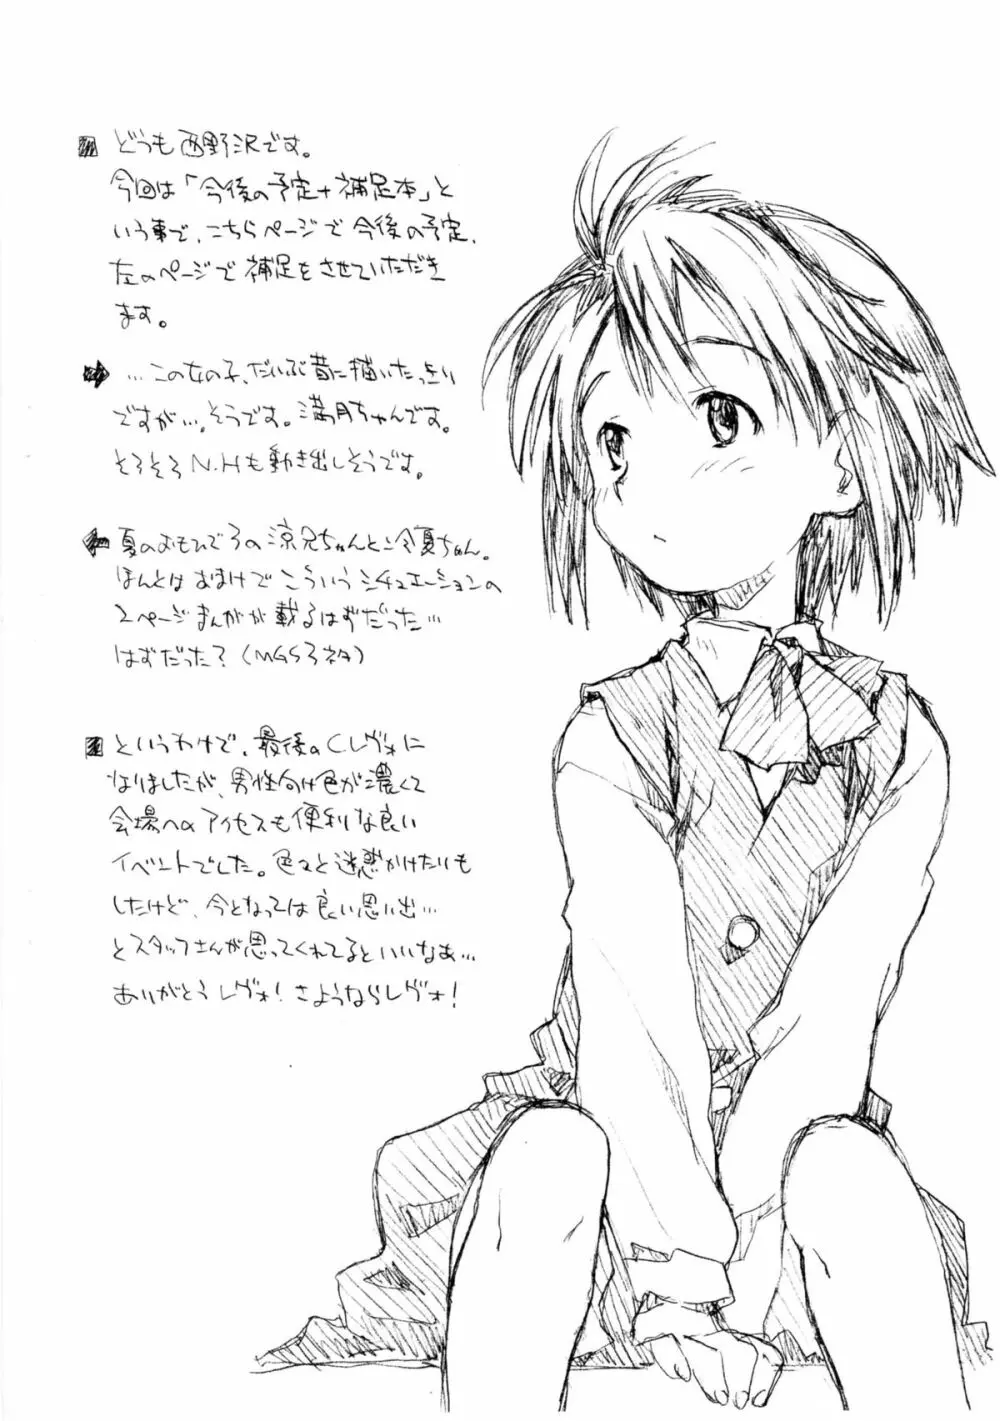 どうも西野沢です。
今回は「今後の予定+補足本」と
いう事で、こちらページで今後の予定、
左のページで補足をさせていただき
ます。
…この女の子、だいぶ昔に描いたっきり
ですが…。そうです。満月ちゃんです。
そろそろN.Hも動き出しそうです。
夏のおもひでろの涼兄ちゃんと冷夏ちゃん。
ほんとはおまけでこういうシチュエーションの
2ページまんがが載るはずだった…
はずだった?(MGS3ネタ)
というわけで、最後のCレヴォに
なりましたが、男性向け色が濃くて
会場へのアクセスも便利な良い
イベントでした。色々と迷惑かけたりも
したけど、今となっては良い思い出…
とスタッフさんが思ってくれてるといいなあ…
ありがとうレヴォ!さようならレヴォ!